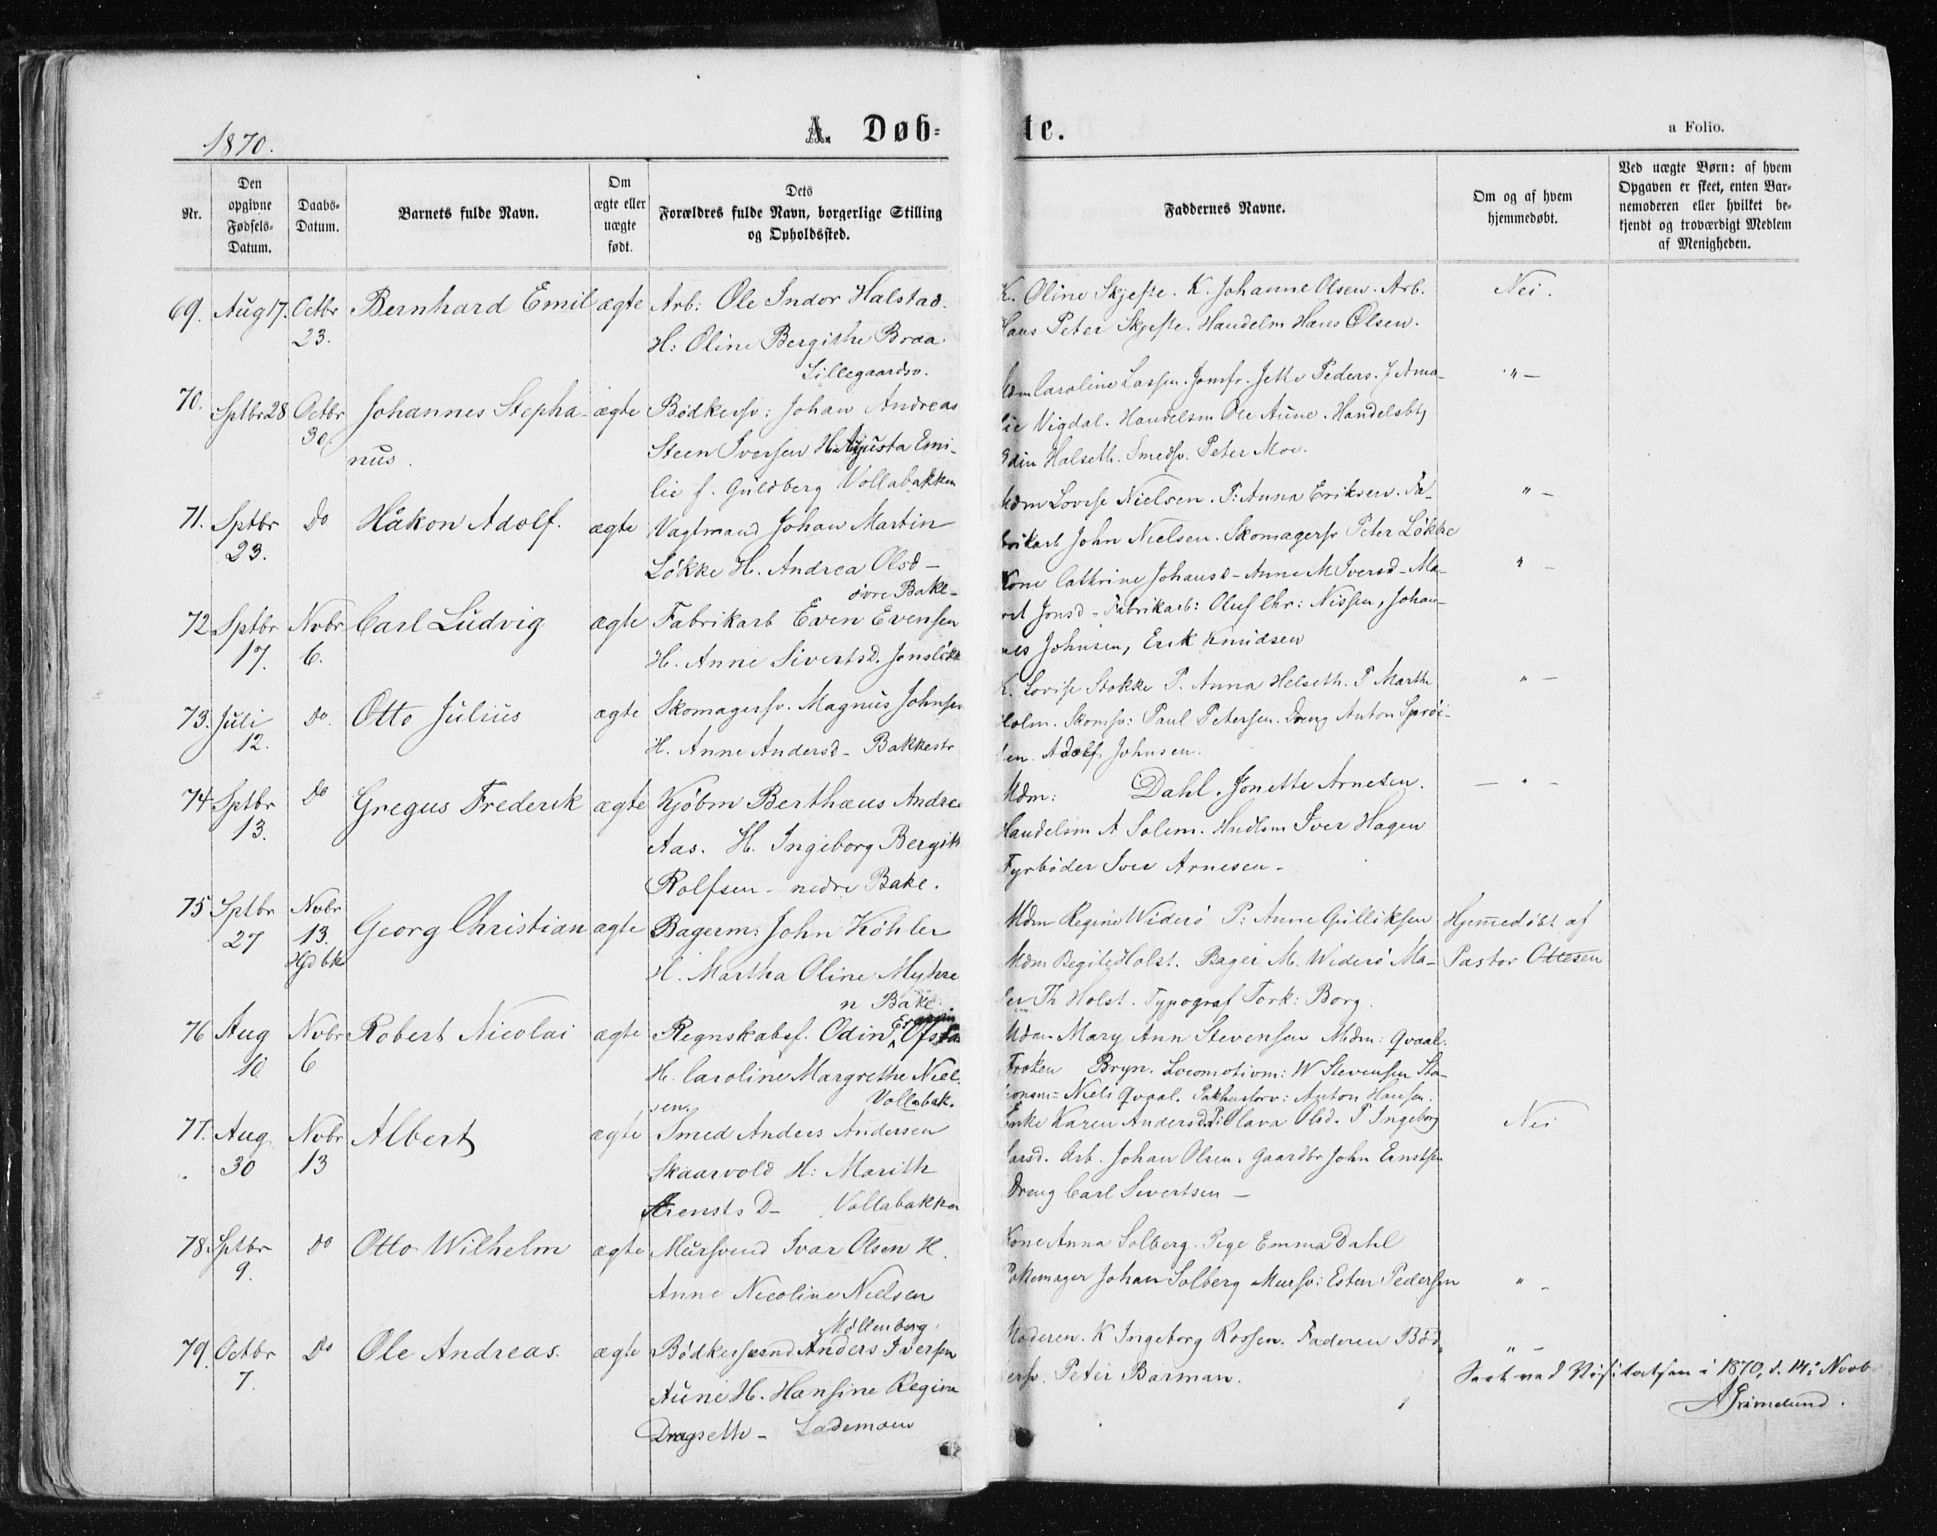 1870.
A. Døb-
te.
a Folio.
Nr.
Den opgivne Fødsels-Datum.
Daabs-Datum.
Barnets fulde Navn.
Om ægte eller uægte født.
Dets
Forældres fulde Navn, borgerlige Stilling
og Opholdssted.
Faddernes Navne.
Om og af hvem
hjemmedøbt.
Ved uægte Børn: af hvem
Opgaven er skeet, enten Bar-
nemoderen eller hvilket be-
kjendt og troværdigt Medlem
af Menigheden.
69. Aug 17. Octbr 23. Bernhard Emil ægte
Arb: Ole Indor Halstad.
H: Oline Bergithe Braa.
Lillegaardsv.
K. Oline Skjefte. K. Johanne Olsen. Arb.
Hans Peter Skjefte. Handelm Hans Olsen.
Nei.
70. Sptbr 28 Octbr 30 Johannes Stepha-
nus. ægte
Bødkersv: Johan Andreas
Steen Iversen H. Augusta Emi-
lie f. Guldberg Vollabakken
Mdm Caroline Lassen. Jomfr. Jette Peders. J Ama-
lie Vigdal. Handelsm Ole Aune. Handelsbtj
Odin Halseth. Smedsv. Peter Moe.
"-
71. Sptbr 23. Do Håkon Adolf. ægte
Vagtmand Johan Martin
Løkke H. Andrea Olsd-
øvre Bakl-
Mdm Lovise Nielsen. P: Anna Eriksen. Fa-
brikarb John Nielsen. Skomagersv Peter Løkke
"-
72 Sptbr 17. Novbr 6. Carl Ludvig ægte
Fabrikarb Even Evensen
H. Anne Sivertsd.
Kone Cathrine Johansd- Anne M Iversd- Ma-
rit Jonsd- Fabrikarb: Oluf Chr: Nissen, Johan-
nes Johnsen, Erik Knudsen
"-
73. Juli 12. Do. Otto Julius ægte
Skomagersv. Magnus Johnsen
H. Anne Andersd- Bakkestr
K. Lovise Stokke P. Anna Helseth. P Marthe
Holm. Skomsv: Paul Petersen. Dreng Anton
Adolf Johnsen.
"-
74. Sptbr 13. Do Gregus Frederik ægte
Kjøbm Berthæus Andre
Aas. H. Ingeborg Bergith
Rolfsen- nedre Bakl.
Mdm: Dahl. Jonette Arnesen.
Handelsm A Solem. Hndlsm Iver Hagen
Fyrbøder Iver Arnesen-
- " -
75 Sptbr 27 Novbr 13. Hjdbt Georg Christian ægte
Bagerm: John Köhler
H. Martha Oline Myhre
n Bakl.
Mdm Regine Widerö P: Anne Gulliksen
Mdm Begite Holst. Bager M. Widerö Ma-
ler Th Holst. Typograf Tork: Borg.
Hjemmedøbt af
Pastor Ottesen
76 Aug 10. Novbr 6 Robert Nicolai ægte
Regnskabsf. Odin
H. Caroline Margrethe Niel-
sen. Vollabak.
Mdm. Mary Ann Stevensen Mdm: Qvaal.
Frøken Bryn. Locomotivm: W Stevensen Sta-
tionsm= Niels Qvaal. Pakhusforv: Anton Hansen.
77. Aug 30 Novbr 13 Albert ægte
Smed Anders Andersen
Skaarvold H: Marith
Arensts D- Vollabakken
Enke Karen Andersd. P: Olava Olsd. P Ingeborg
Larsd. Arb. Johan Olsen. Gaardbr John Ernstsen
Dreng Carl Sivertsen-
Nei
78. Sptbr 9. Do Otto Wilhelm ægte
Mursvend Ivar Olsen H.
Anne Nicoline Nielsen
Møllenberg.
Kone Anna Solberg. Pige Emma Dahl
Johan Solberg Mursv: Esten Pedersen
"-
79. Octbr 7. Do Ole Andreas. ægte
Bødkersvend Anders Iversen
Aune H. Hansine Regine
Dragseth- Lademoen
Moderen. K Ingeborg Rossen. Faderen Bød-
kersv. Peter Barman.
"-
Seet ved Visitatsen i 1870, d. 14: Novb
AGrimelund.